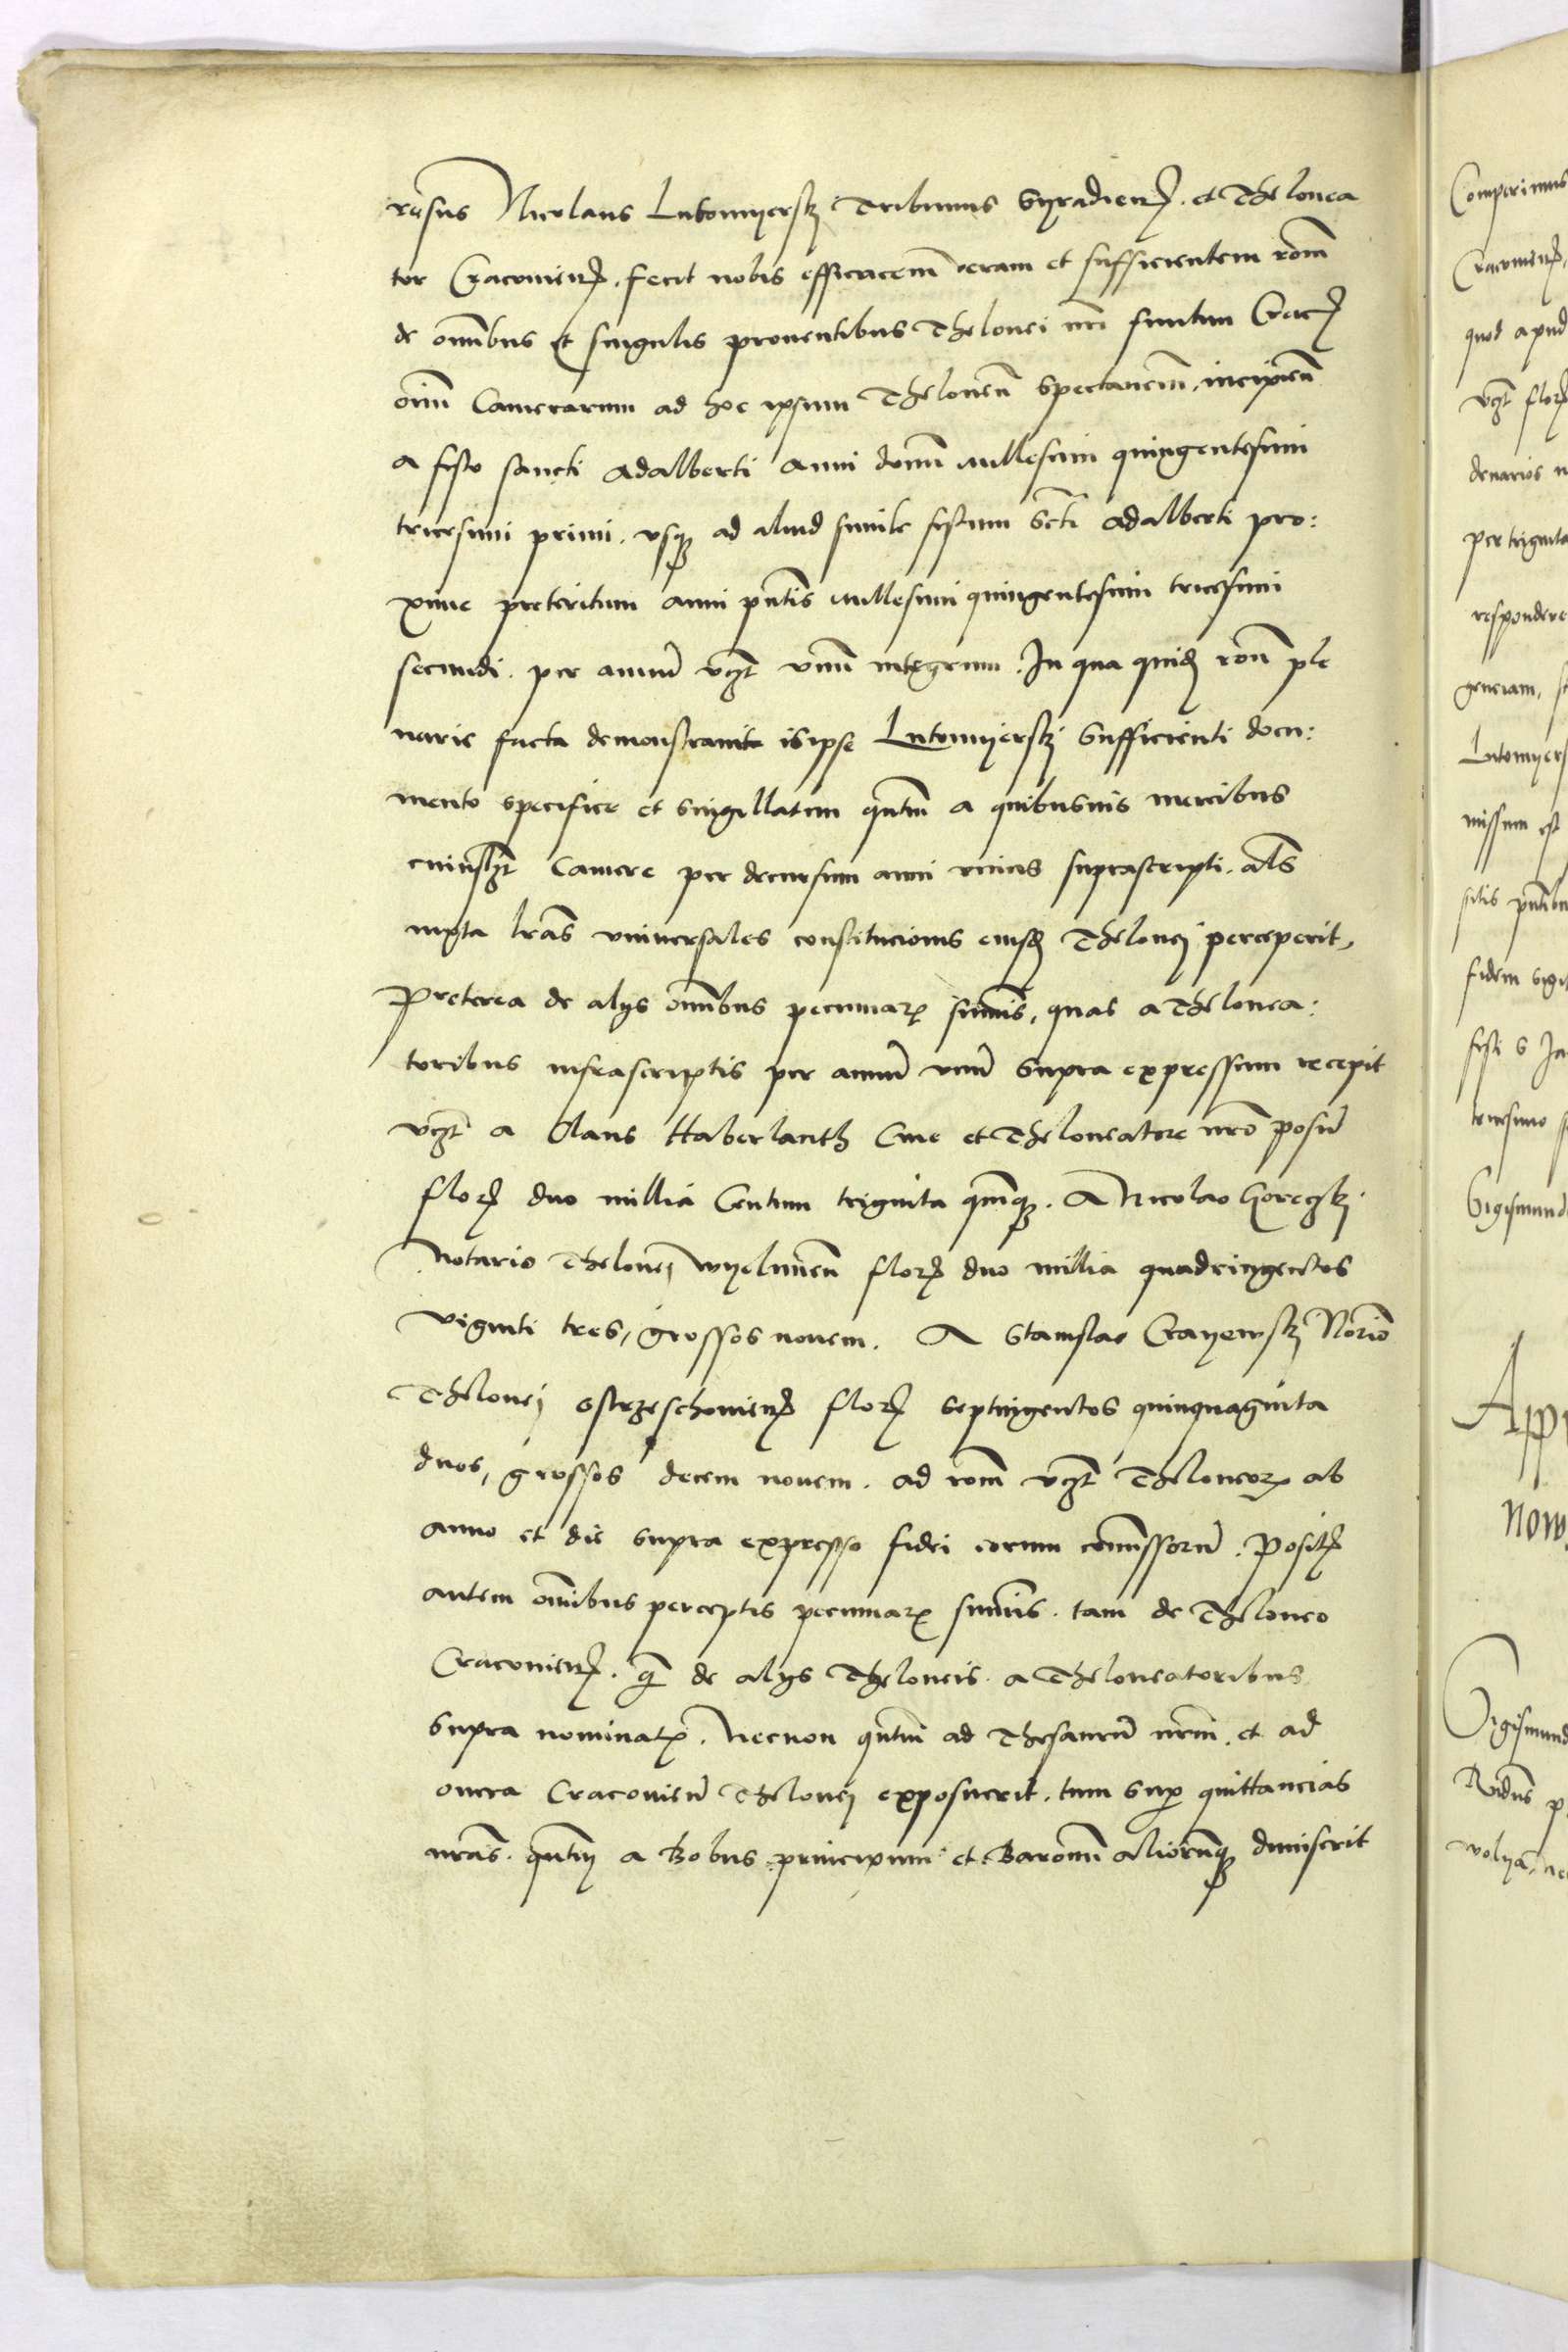 rosus Nicolaus Lutomyersky Tribunus Syradien. et Thelonea
tor Cracovien. fecit nobis efficacem veram et sufficientem rōm
de omnibus et singulis proventibus Thelonei nri
oīm Camerarum ad hoc ipsum Theloneū spectanciū. incipien
a festo sancti Adalberti Anni domi millesimi quingentesimi
tricesimi primi. usq ad aliud simile festum Scti Adalberti pro:
xime preteritum anni pntis millesimi quingentesimi tricesimi
secundi. per annū vczt unū integrum. In qua quid rōne ple
narie facta demonstravit is ipse Lutomyersky sufficienti docu:
mento specifice et singillatim qntū a quibusvis mercibus
cuiuslzt Camere per decursum anni unius suprascripti. als
iuxta lras universales constitucionis eiusd Thelonei perceperit,
Preterea de alys omnibus pecuniar summis, quas a Thelonea:
toribus infrascriptis per annū unū supra expressum recepit
vczt a Olaus Haberlanth Cive et Theloneatore nro posn
flor duo millia Centum triginta quinq. A Nicolao Goreczky
Notario Thelonei wyelunen flor duo millia quadringentos
viginti tres, grossos novem. A Stanislao Crayewsky Norio
Thelonei ostrzeschovien flor septingentos quinquaginta
duos, grossos decem novem. ad rōm vczt Theloneor ab
anno et die supra expresso fidei eorum comissorū. Posit
autem omnibus perceptis pecuniar summis. tam de Theloneo
Cracovien. q de alys Theloneis a Theloneatoribus
supra nominat. Necnon qntū ad Thesaurū nrm. et ad
onera Cracovien Thelonei exposuerit. tum sup quittancias
nras. qntū a Bobus principum et Baronū aliorūq dimiserit
Comperimus
Cracovien,
quod apud
vczt flor
denarios
per triginta
respondere
genciam,
Lutomyers
missum est
sitis pntibu
fidem sigi
festi S Ja
tricesimo
Sigismund
App
now
Sigismund